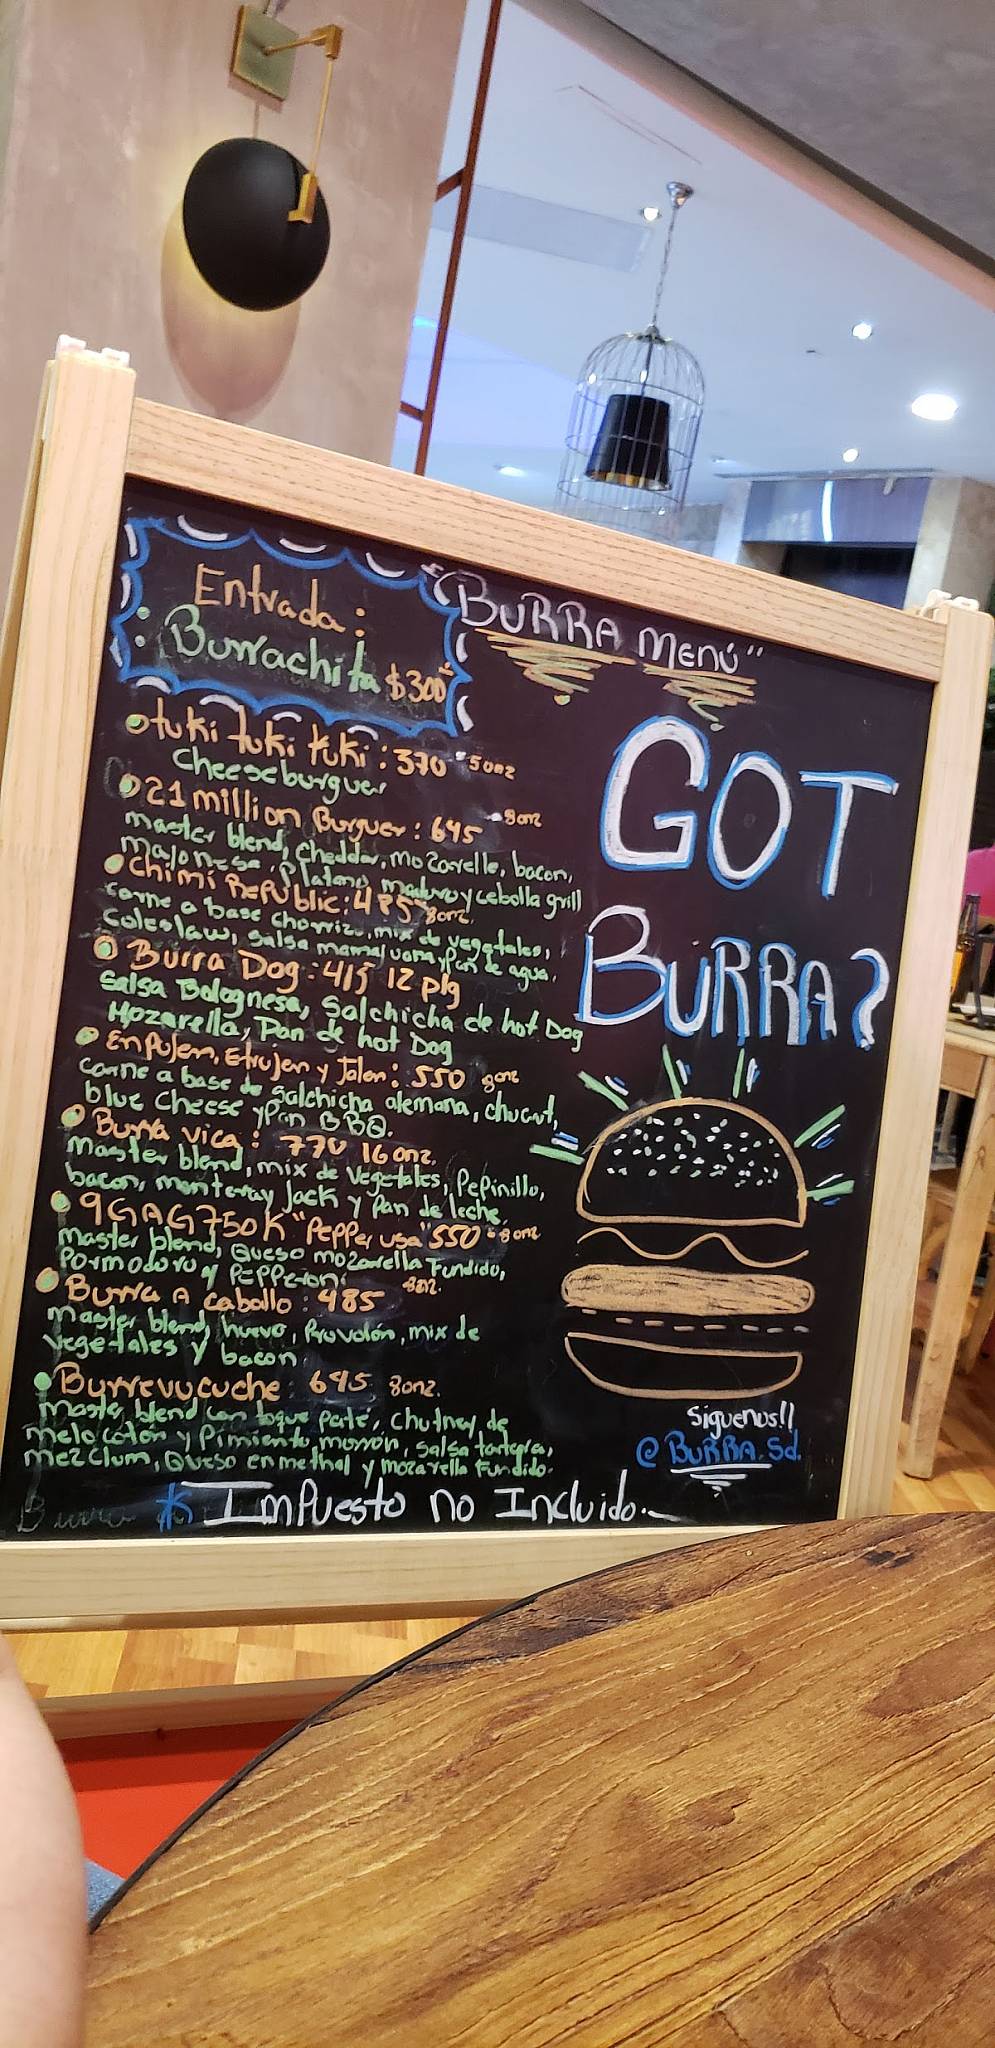 Entrada:
: Burrachita $300
"BURRA Menú"
tuki tuki tuki: 370 5onz
Cheeseburguer
21 million Burguer: 645 8onz
master blend, cheddar, mozarelle, bacon,
majonesa, platano maduro y cebolla grill
Chimi REPUBLIC: 485 8onz.
carne a base chorrizo, mix de vegetales,
Coleslaw, salsa mamajuana y Pan de agua.
Burra Dog: 415 12 plg
Salsa Bolognesa, Salchicha de hot Dog
Mozarella, Pan de hot Dog
Enpujen, Etrujen y Jalen: 550 8onz
carne a base de salchicha alemana, chucrut,
blue cheese y Pan BBQ.
Burra vica: 770 16 onz.
Master blend, mix de vegetales, Pepinillo,
bacon, monteray jack y Pan de leche.
9GAG750K "Pepper usa" 550 8onz
master blend, Queso mozarella Fundido,
Pormodoro y PEPPeroni
Burra A caballo: 485 8onz.
Master blend, huevo, Provolón, mix de
vegetales y bacon
Burrevucuche: 695 8onz.
Master blend con toque paté, chutney de
melocotón y Pimiento morrón, salsa tartara,
mezclum, Queso enmethal y mozarella Fundido.
* Impuesto no Incluido.
GOT
BURRA?
Siguenos!!
@BURRA.Sd.